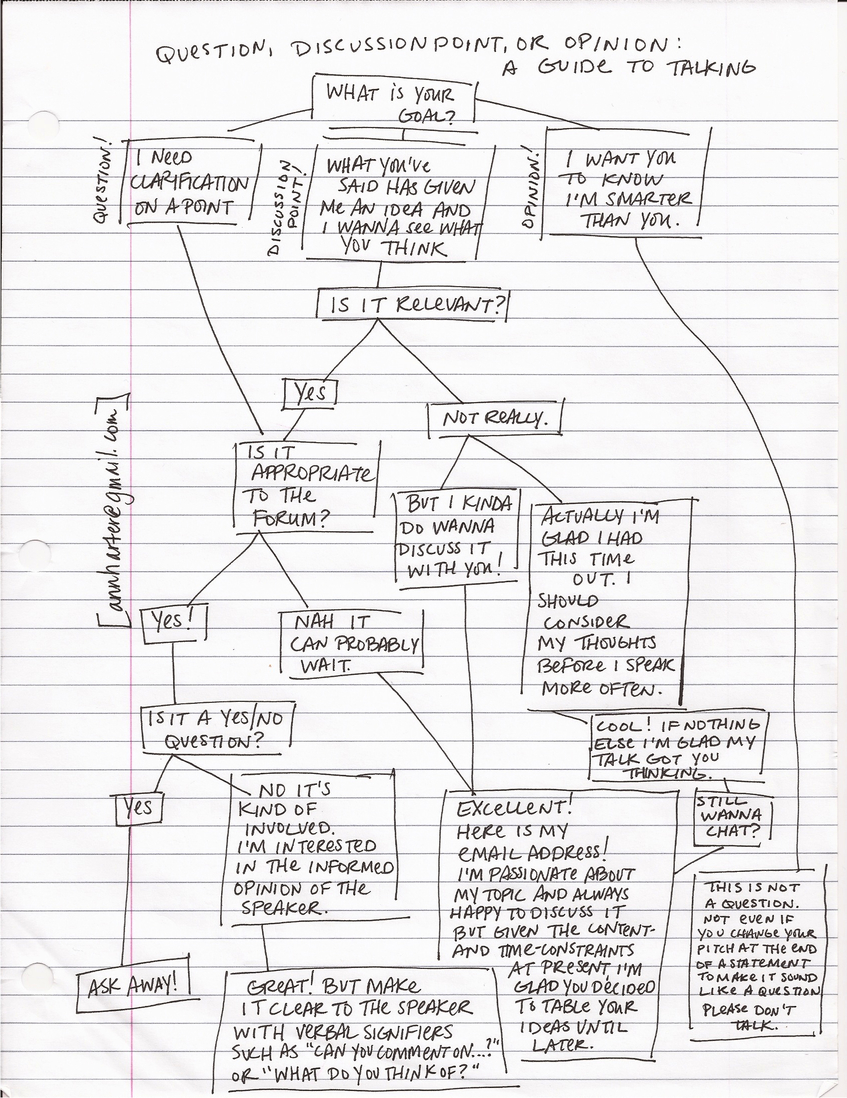 QUESTION, DISCUSSION POINT, OR OPINION:
A GUIDE TO TALKING
WHAT IS YOUR
GOAL?
QUESTION!
I NEED
CLARIFICATION
ON A POINT
DISCUSSION
POINT!
WHAT YOU'VE
SAID HAS GIVEN
ME AN IDEA AND
I WANNA SEE WHAT
YOU THINK
OPINION!
I WANT YOU
TO KNOW
I'M SMARTER
THAN YOU.
IS IT RELEVANT?
YES
NOT REALLY.
[annharter@gmail.com]
IS IT
APPROPRIATE
TO THE
FORUM?
BUT I KINDA
DO WANNA
DISCUSS IT
WITH YOU!
ACTUALLY I'M
GLAD I HAD
THIS TIME
OUT. I
SHOULD
CONSIDER
MY THOUGHTS
BEFORE I SPEAK
MORE OFTEN.
YES!
NAH IT
CAN PROBABLY
WAIT.
IS IT A YES/NO
QUESTION?
COOL! IF NOTHING
ELSE I'M GLAD MY
TALK GOT YOU
THINKING.
YES
NO IT'S
KIND OF
INVOLVED.
I'M INTERESTED
IN THE INFORMED
OPINION OF THE
SPEAKER.
EXCELLENT!
HERE IS MY
EMAIL ADDRESS!
I'M PASSIONATE ABOUT
MY TOPIC AND ALWAYS
HAPPY TO DISCUSS IT
BUT GIVEN THE CONTENT-
AND TIME-CONSTRAINTS
AT PRESENT, I'M
GLAD YOU DECIDED
TO TABLE YOUR
IDEAS UNTIL
LATER.
STILL
WANNA
CHAT?
THIS IS NOT
A QUESTION.
NOT EVEN IF
YOU CHANGE YOUR
PITCH AT THE END
OF A STATEMENT
TO MAKE IT SOUND
LIKE A QUESTION
PLEASE DON'T
TALK.
ASK AWAY!
GREAT! BUT MAKE
IT CLEAR TO THE SPEAKER
WITH VERBAL SIGNIFIERS
SUCH AS "CAN YOU COMMENT ON...?"
OR "WHAT DO YOU THINK OF?"